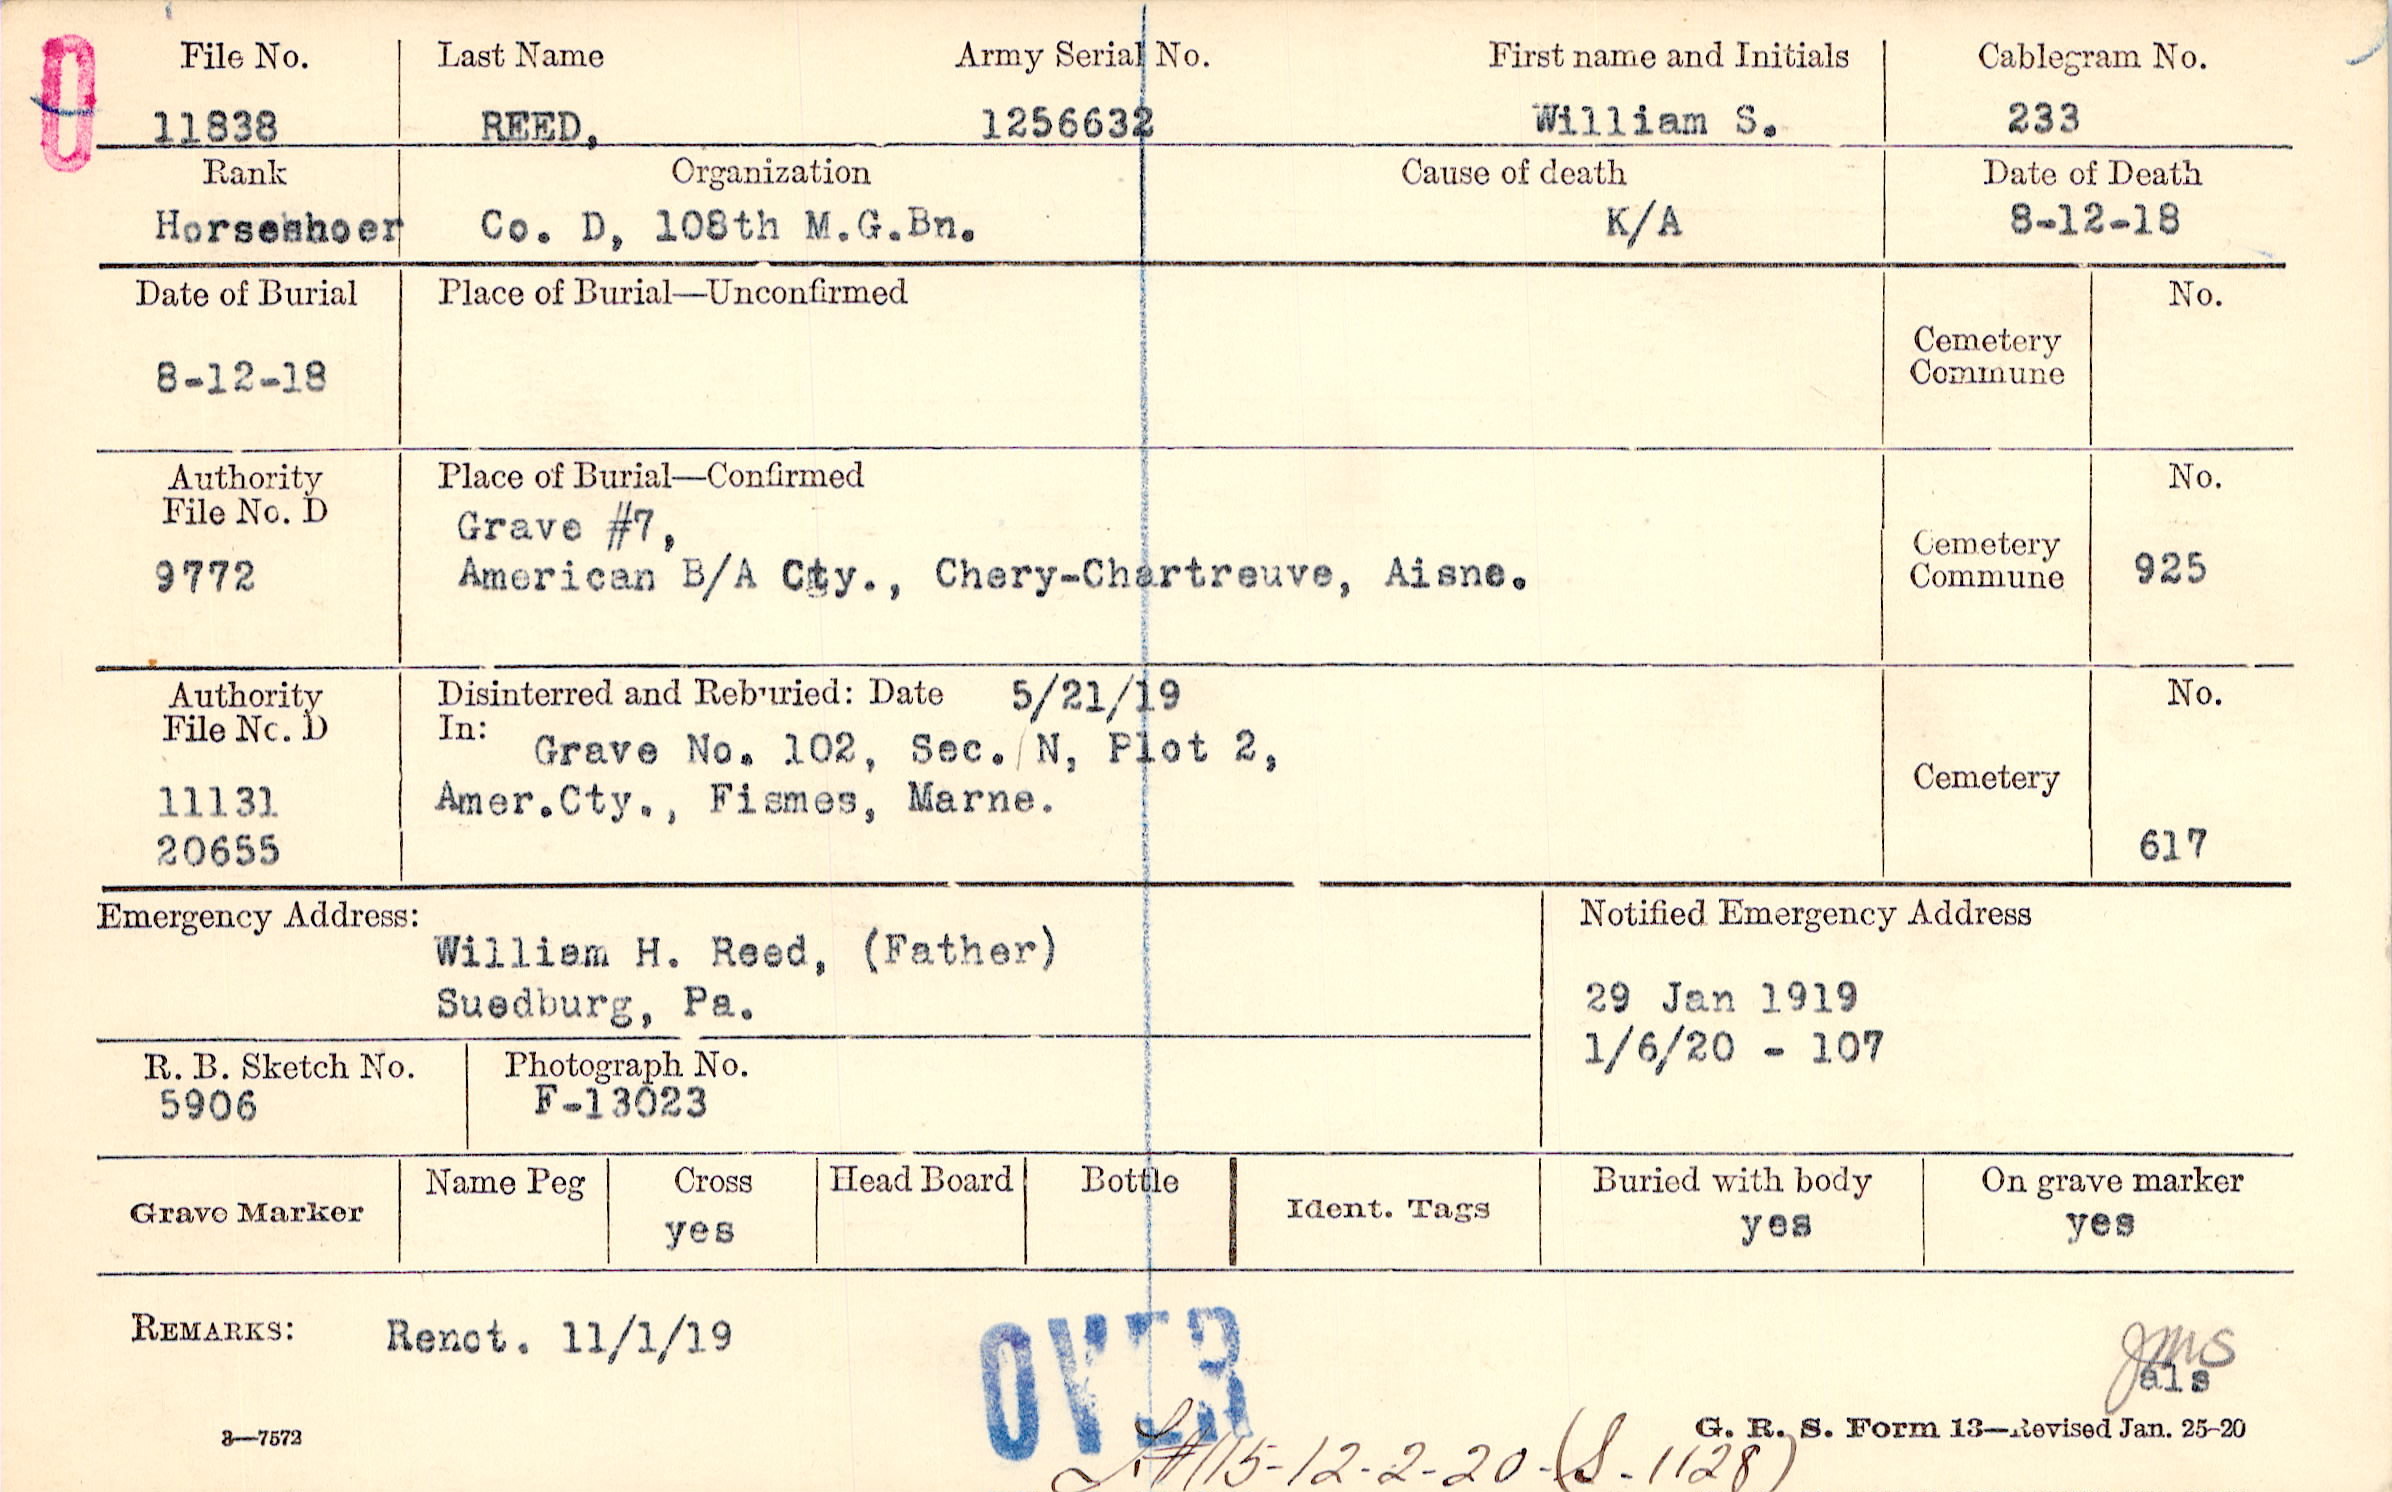 0
File No. Last Name Army Serial No. First name and Initials Cablegram No.
11838 REED, 1256632 William S. 233
Rank Organization Cause of death Date of Death
Horseshoer Co. D, 108th M.G.Bn. K/A 8-12-18
Date of Burial Place of Burial—Unconfirmed No.
Cemetery
Commune
8-12-18
Authority Place of Burial—Confirmed No.
File No. D
Grave #7,
Cemetery
9772 American B/A Cty., Chery-Chartreuve, Aisne. Commune 925
Authority Disinterred and Reburied: Date 5/21/19 No.
File No. D In:
Grave No. 102, Sec. N, Plot 2,
Cemetery
11131 Amer.Cty., Fismes, Marne.
20655 617
Emergency Address: Notified Emergency Address
William H. Reed, (Father)
Suedburg, Pa. 29 Jan 1919
1/6/20 - 107
R. B. Sketch No. Photograph No.
5906 F-13023
Grave Marker Name Peg Cross Head Board Bottle Ident. Tags Buried with body On grave marker
yes yes yes
REMARKS: Renot. 11/1/19
OVER
JMS
als
3—7572 G. R. S. Form 13—Revised Jan. 25-20
#115-12-2-20-(S-1128)